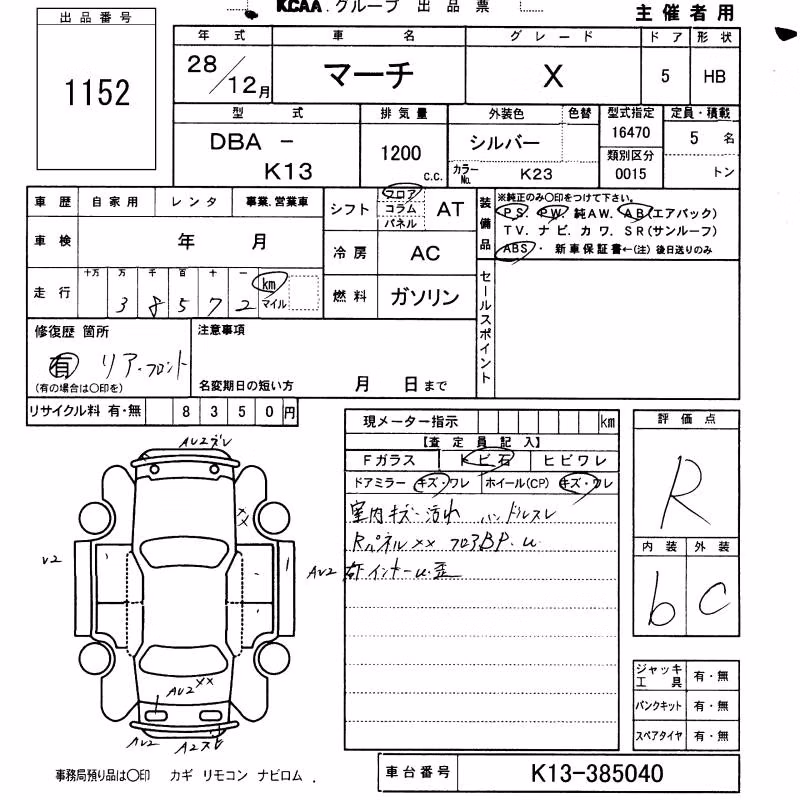 KCAA.グループ 出品票
主催者用
出品番号
1152
年式 車名 グレード ドア 形状
28/12月 マーチ X 5 HB
型式 排気量 外装色 色替 型式指定 定員・積載
DBA - K13 1200 c.c. シルバー 16470 5 名
カラーNo. K23 類別区分 0015 トン
車歴 自家用 レンタ 事業.営業車
シフト フロア コラム パネル AT
車検 年 月
冷房 AC
走行 十万 万 千 百 十 一 km マイル
3 8 5 7 2
燃料 ガソリン
装備品
※純正のみ〇印をつけて下さい。
PS. PW. 純AW. AB(エアバック)
TV. ナビ. カワ. SR(サンルーフ)
ABS・ 新車保証書←(注) 後日送りのみ
セールスポイント
修復歴 箇所
有 リア・フロント
(有の場合は〇印を)
注意事項
名変期日の短い方 月 日まで
リサイクル料 有・無 8 3 5 0 円
現メーター指示 km
【査定員記入】
Fガラス トビ石 ヒビワレ
ドアミラー キズ・ワレ ホイール(CP) キズ・ワレ
室内キズ・汚れ ハンドルスレ
Rパネル××  フロアBP.u
右Fインナーu.歪
評価点
R
内装 外装
b C
ジャッキ工具 有・無
パンクキット 有・無
スペアタイヤ 有・無
AU2ズレ
××
U2
AU2
AU2××
AU2
事務局預り品は〇印 カギ リモコン ナビロム.
車台番号 K13-385040